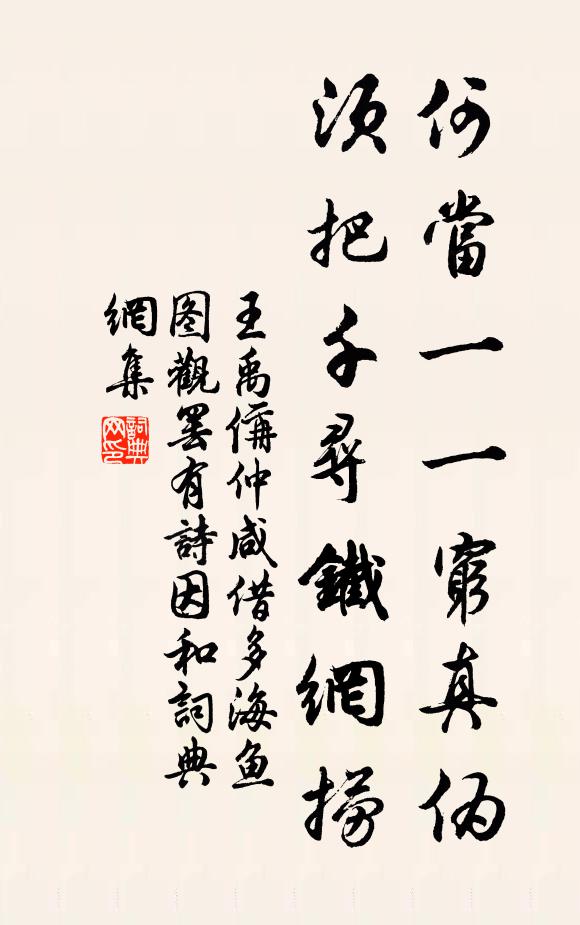 何當一一窮真偽
須把千尋鐵網撈
王禹偁仲咸借多海鱼
图觀罢有詩因和詞典
網集
詞典網印